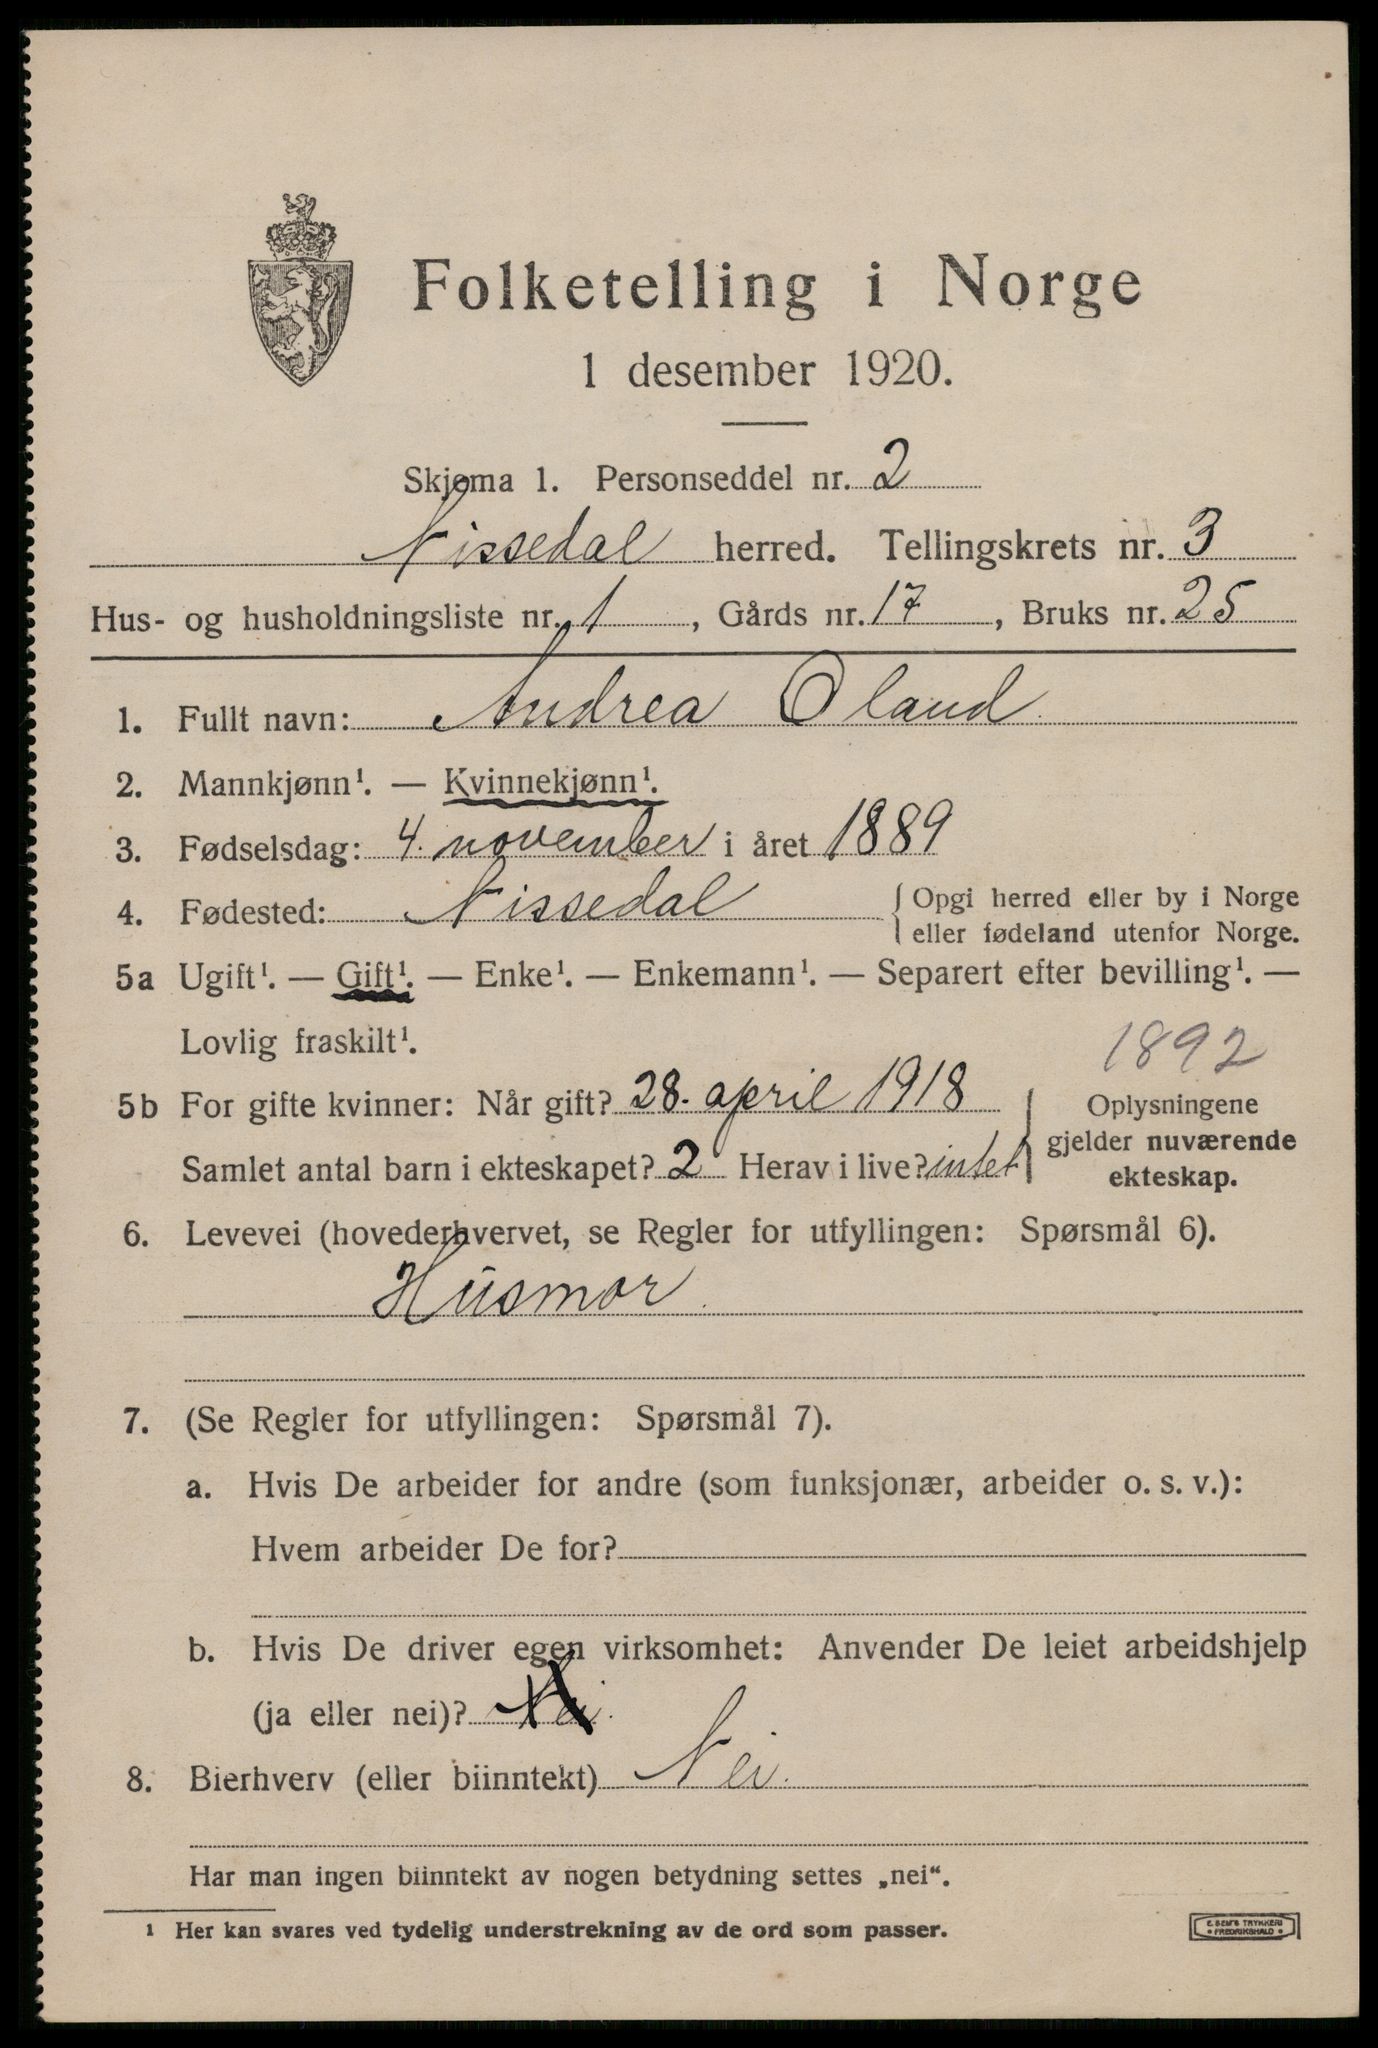 Folketelling i Norge
1 desember 1920.
Skjema 1. Personseddel nr. 2
Nissedal herred. Tellingskrets nr. 3
Hus- og husholdningsliste nr. 1, Gårds nr. 17, Bruks nr. 25
1. Fullt navn: Andrea Oland
2. Mannkjønn¹. — Kvinnekjønn¹.
3. Fødselsdag: 4. november i året 1889
4. Fødested: Nissedal { Opgi herred eller by i Norge
eller fødeland utenfor Norge.
5a Ugift¹. — Gift¹. — Enke¹. — Enkemann¹. — Separert efter bevilling¹. —
Lovlig fraskilt¹.
1892
5b For gifte kvinner: Når gift? 28. april 1918
Samlet antal barn i ekteskapet? 2 Herav i live? intet
Oplysningene
gjelder nuværende
ekteskap.
6. Levevei (hovederhvervet, se Regler for utfyllingen: Spørsmål 6).
Husmor
7. (Se Regler for utfyllingen: Spørsmål 7).
a. Hvis De arbeider for andre (som funksjonær, arbeider o. s. v.):
Hvem arbeider De for?
b. Hvis De driver egen virksomhet: Anvender De leiet arbeidshjelp
(ja eller nei)? Nei.
8. Bierhverv (eller biinntekt) Nei.
Har man ingen biinntekt av nogen betydning settes „nei“.
¹ Her kan svares ved tydelig understrekning av de ord som passer.
E. SEM'S TRYKKERI
• FREDRIKSHALD •